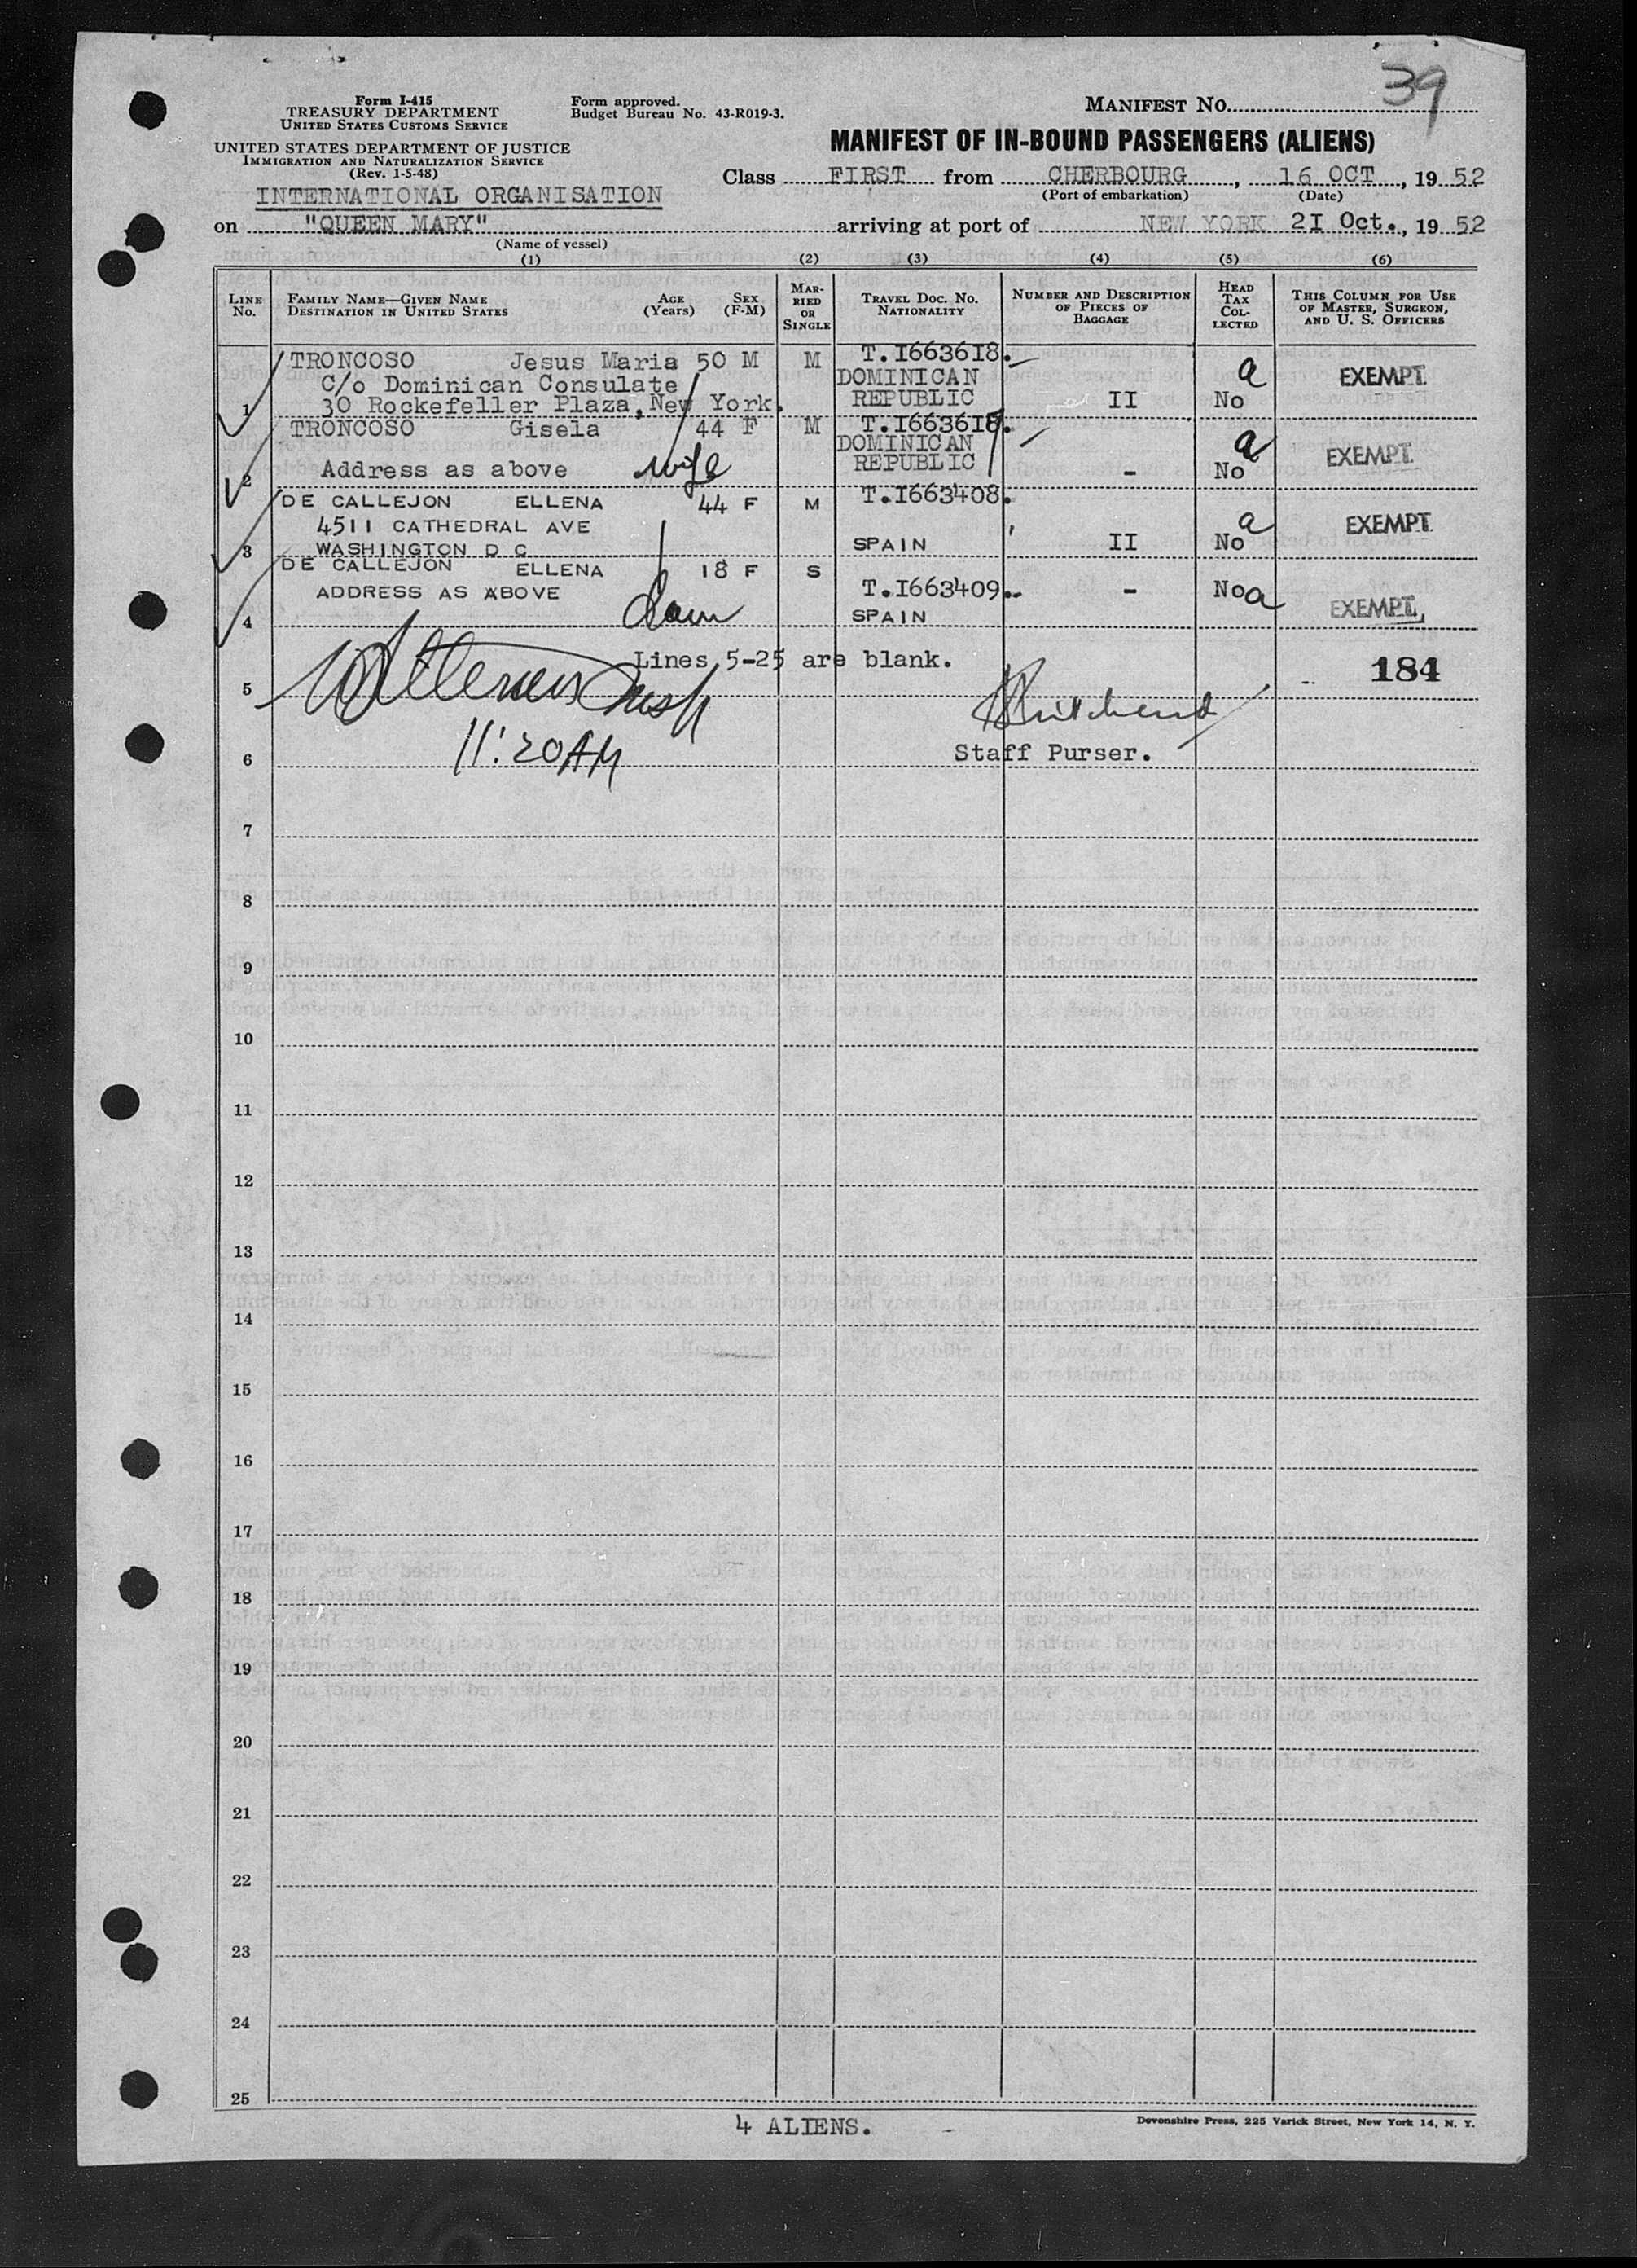 39
Form I-415
TREASURY DEPARTMENT
UNITED STATES CUSTOMS SERVICE
Form approved.
Budget Bureau No. 43-R019-3.
MANIFEST NO.
UNITED STATES DEPARTMENT OF JUSTICE
IMMIGRATION AND NATURALIZATION SERVICE
(Rev. 1-5-48)
MANIFEST OF IN-BOUND PASSENGERS (ALIENS)
INTERNATIONAL ORGANISATION
Class FIRST from CHERBOURG, 16 OCT, 19 52
(Port of embarkation) (Date)
on "QUEEN MARY" arriving at port of NEW YORK 2I Oct., 19 52
(Name of vessel)
(1) (2) (3) (4) (5) (6)
LINE No. FAMILY NAME—GIVEN NAME DESTINATION IN UNITED STATES AGE (Years) SEX (F-M) MARRIED OR SINGLE TRAVEL DOC. NO. NATIONALITY NUMBER AND DESCRIPTION OF PIECES OF BAGGAGE HEAD TAX COLLECTED THIS COLUMN FOR USE OF MASTER, SURGEON, AND U. S. OFFICERS
TRONCOSO Jesus Maria 50 M M T.I6636I8.
C/o Dominican Consulate DOMINICAN a EXEMPT.
1 30 Rockefeller Plaza, New York. REPUBLIC II No
TRONCOSO Gisela 44 F M T.I6636I9.
DOMINICAN a EXEMPT.
2 Address as above wife REPUBLIC - No
DE CALLEJON ELLENA 44 F M T.I663408.
4511 CATHEDRAL AVE a EXEMPT.
3 WASHINGTON D C SPAIN II No
DE CALLEJON ELLENA 18 F S
ADDRESS AS ABOVE T.I663409. - No a EXEMPT.
4 SPAIN
Lines 5-25 are blank.
184
5
11:20AM
6 Staff Purser.
7
8
9
10
11
12
13
14
15
16
17
18
19
20
21
22
23
24
25
4 ALIENS.
Devonshire Press, 225 Varick Street, New York 14, N. Y.